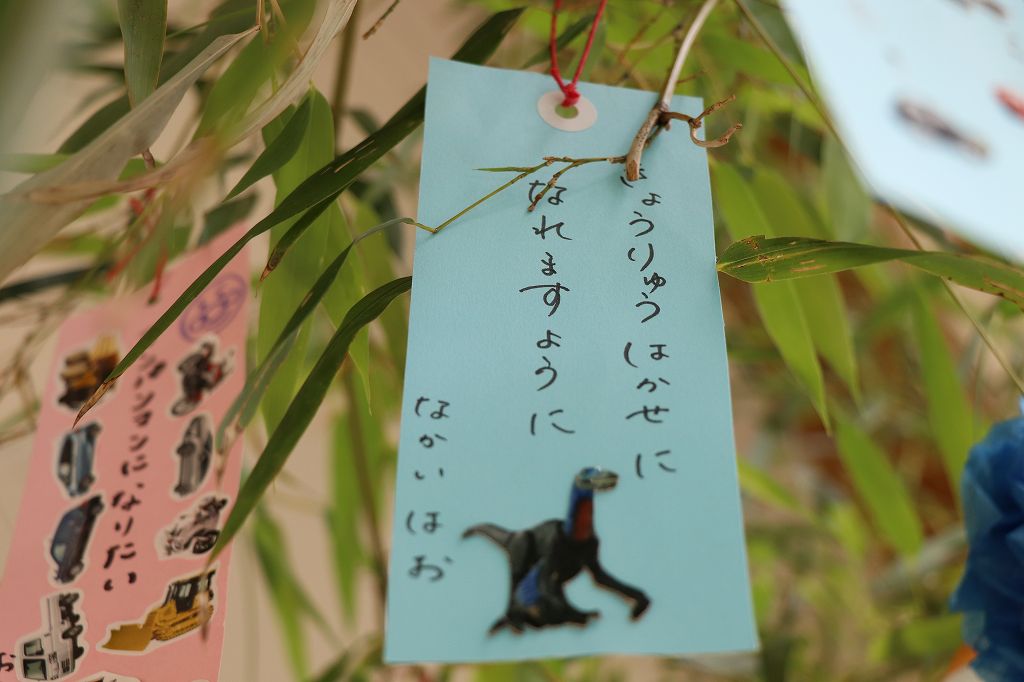 きょうりゅう はかせに
なれますように
なかい はお
になりたい